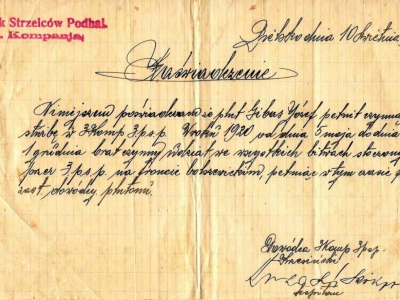 k Strzelców Podhal.
. Kompanja
Bielsko dnia 10 kwietnia
Zaświadczenie
Niniejszem poświadczam że plut. Gibas Józef pełnił czynną
służbę w 3 Komp 3.p.s.p. W roku 1920 od dnia 5 maja do dnia
1 grudnia brał czynny udział we wszystkich bitwach
przez 3. p.s.p. na froncie bolszewickiem, pełniąc w tym czasie
zast. dowódcy plutonu.
Dowódca 3 Komp 3 psp.